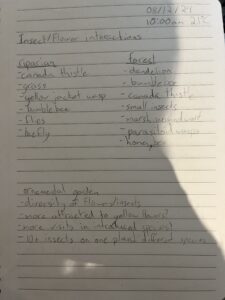 08/12/21
10:00am 21°C
Insect/Flower interactions
riparian
-canada thistle
-grass
-yellow jacket wasp
-bumblebee
-flies
forest
-dandelion
-bumblebee
-canada thistle
-small insects
-parasitoid wasps
-honeybee
ornemental garden
-diversity of flowers/insects
-more attracted to yellow flowers?
-more visits in introduced species?
-10+ insects on one plant different species